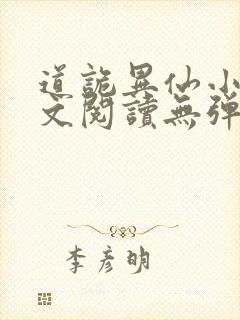 道詭異仙小
文閱讀無彈
李彥明